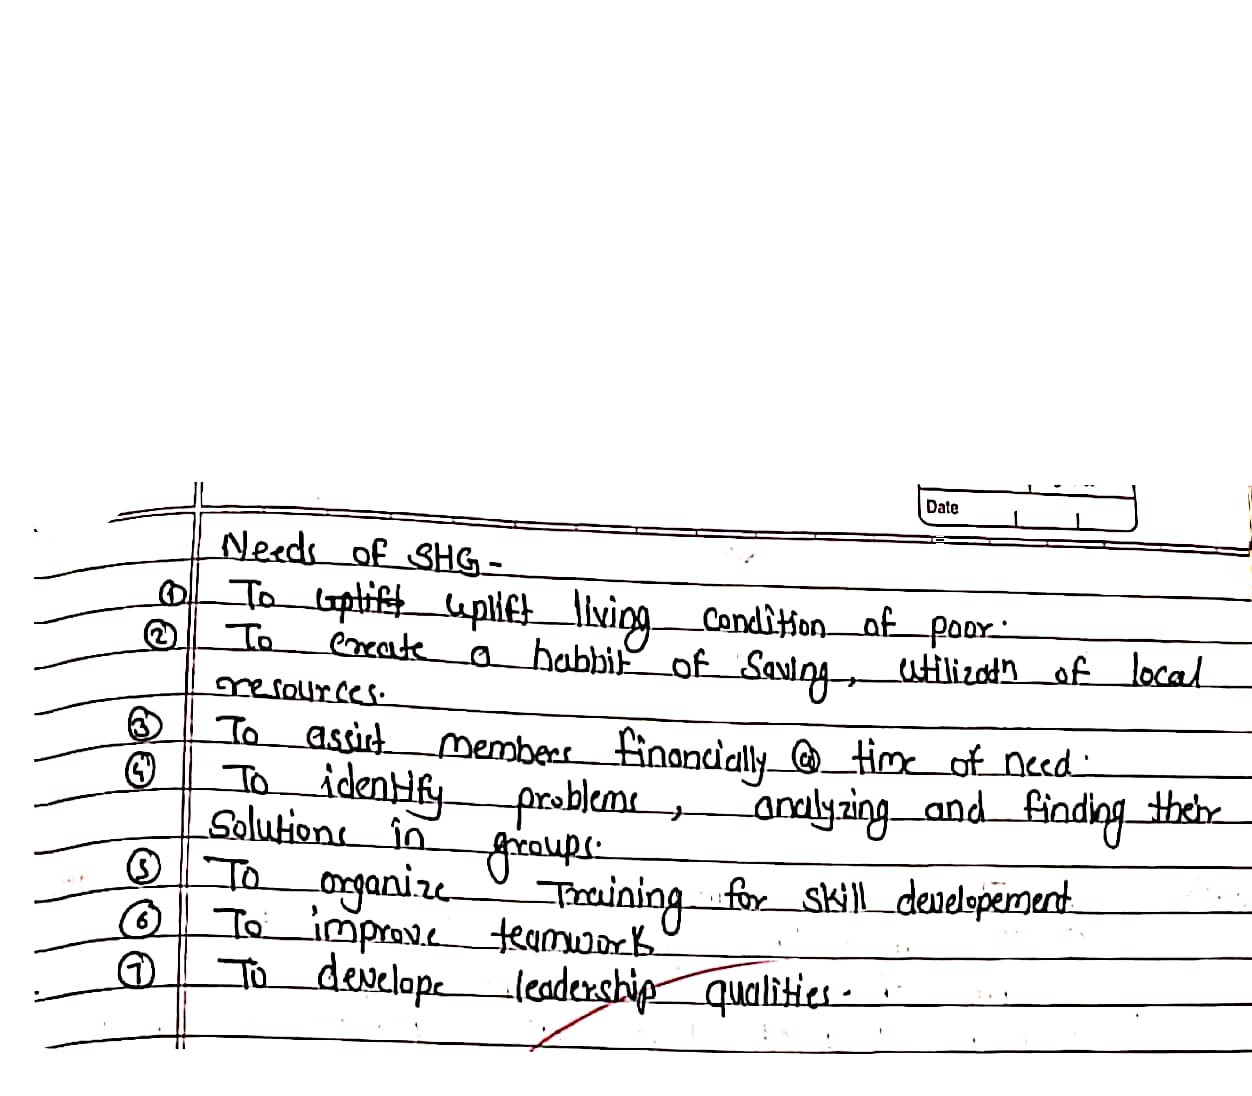 Date
Needs of SHG -
① To uplift uplift living condition of poor.
② To create a habbit of Saving, utilizatn of local
resources.
③ To assist members financially @ time of need.
④ To identify problems, analyzing and finding their
Solutions in groups.
⑤ To organize Training for skill developement
⑥ To improve teamwork
⑦ To develope leadership qualities.